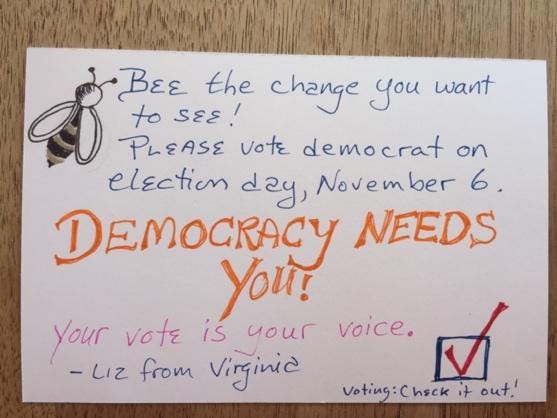 Bee the change you want
to see!
Please vote democrat on
election day, November 6.
DEMOCRACY NEEDS
YOU!
Your vote is your voice.
- Liz from Virginia
Voting: Check it out!